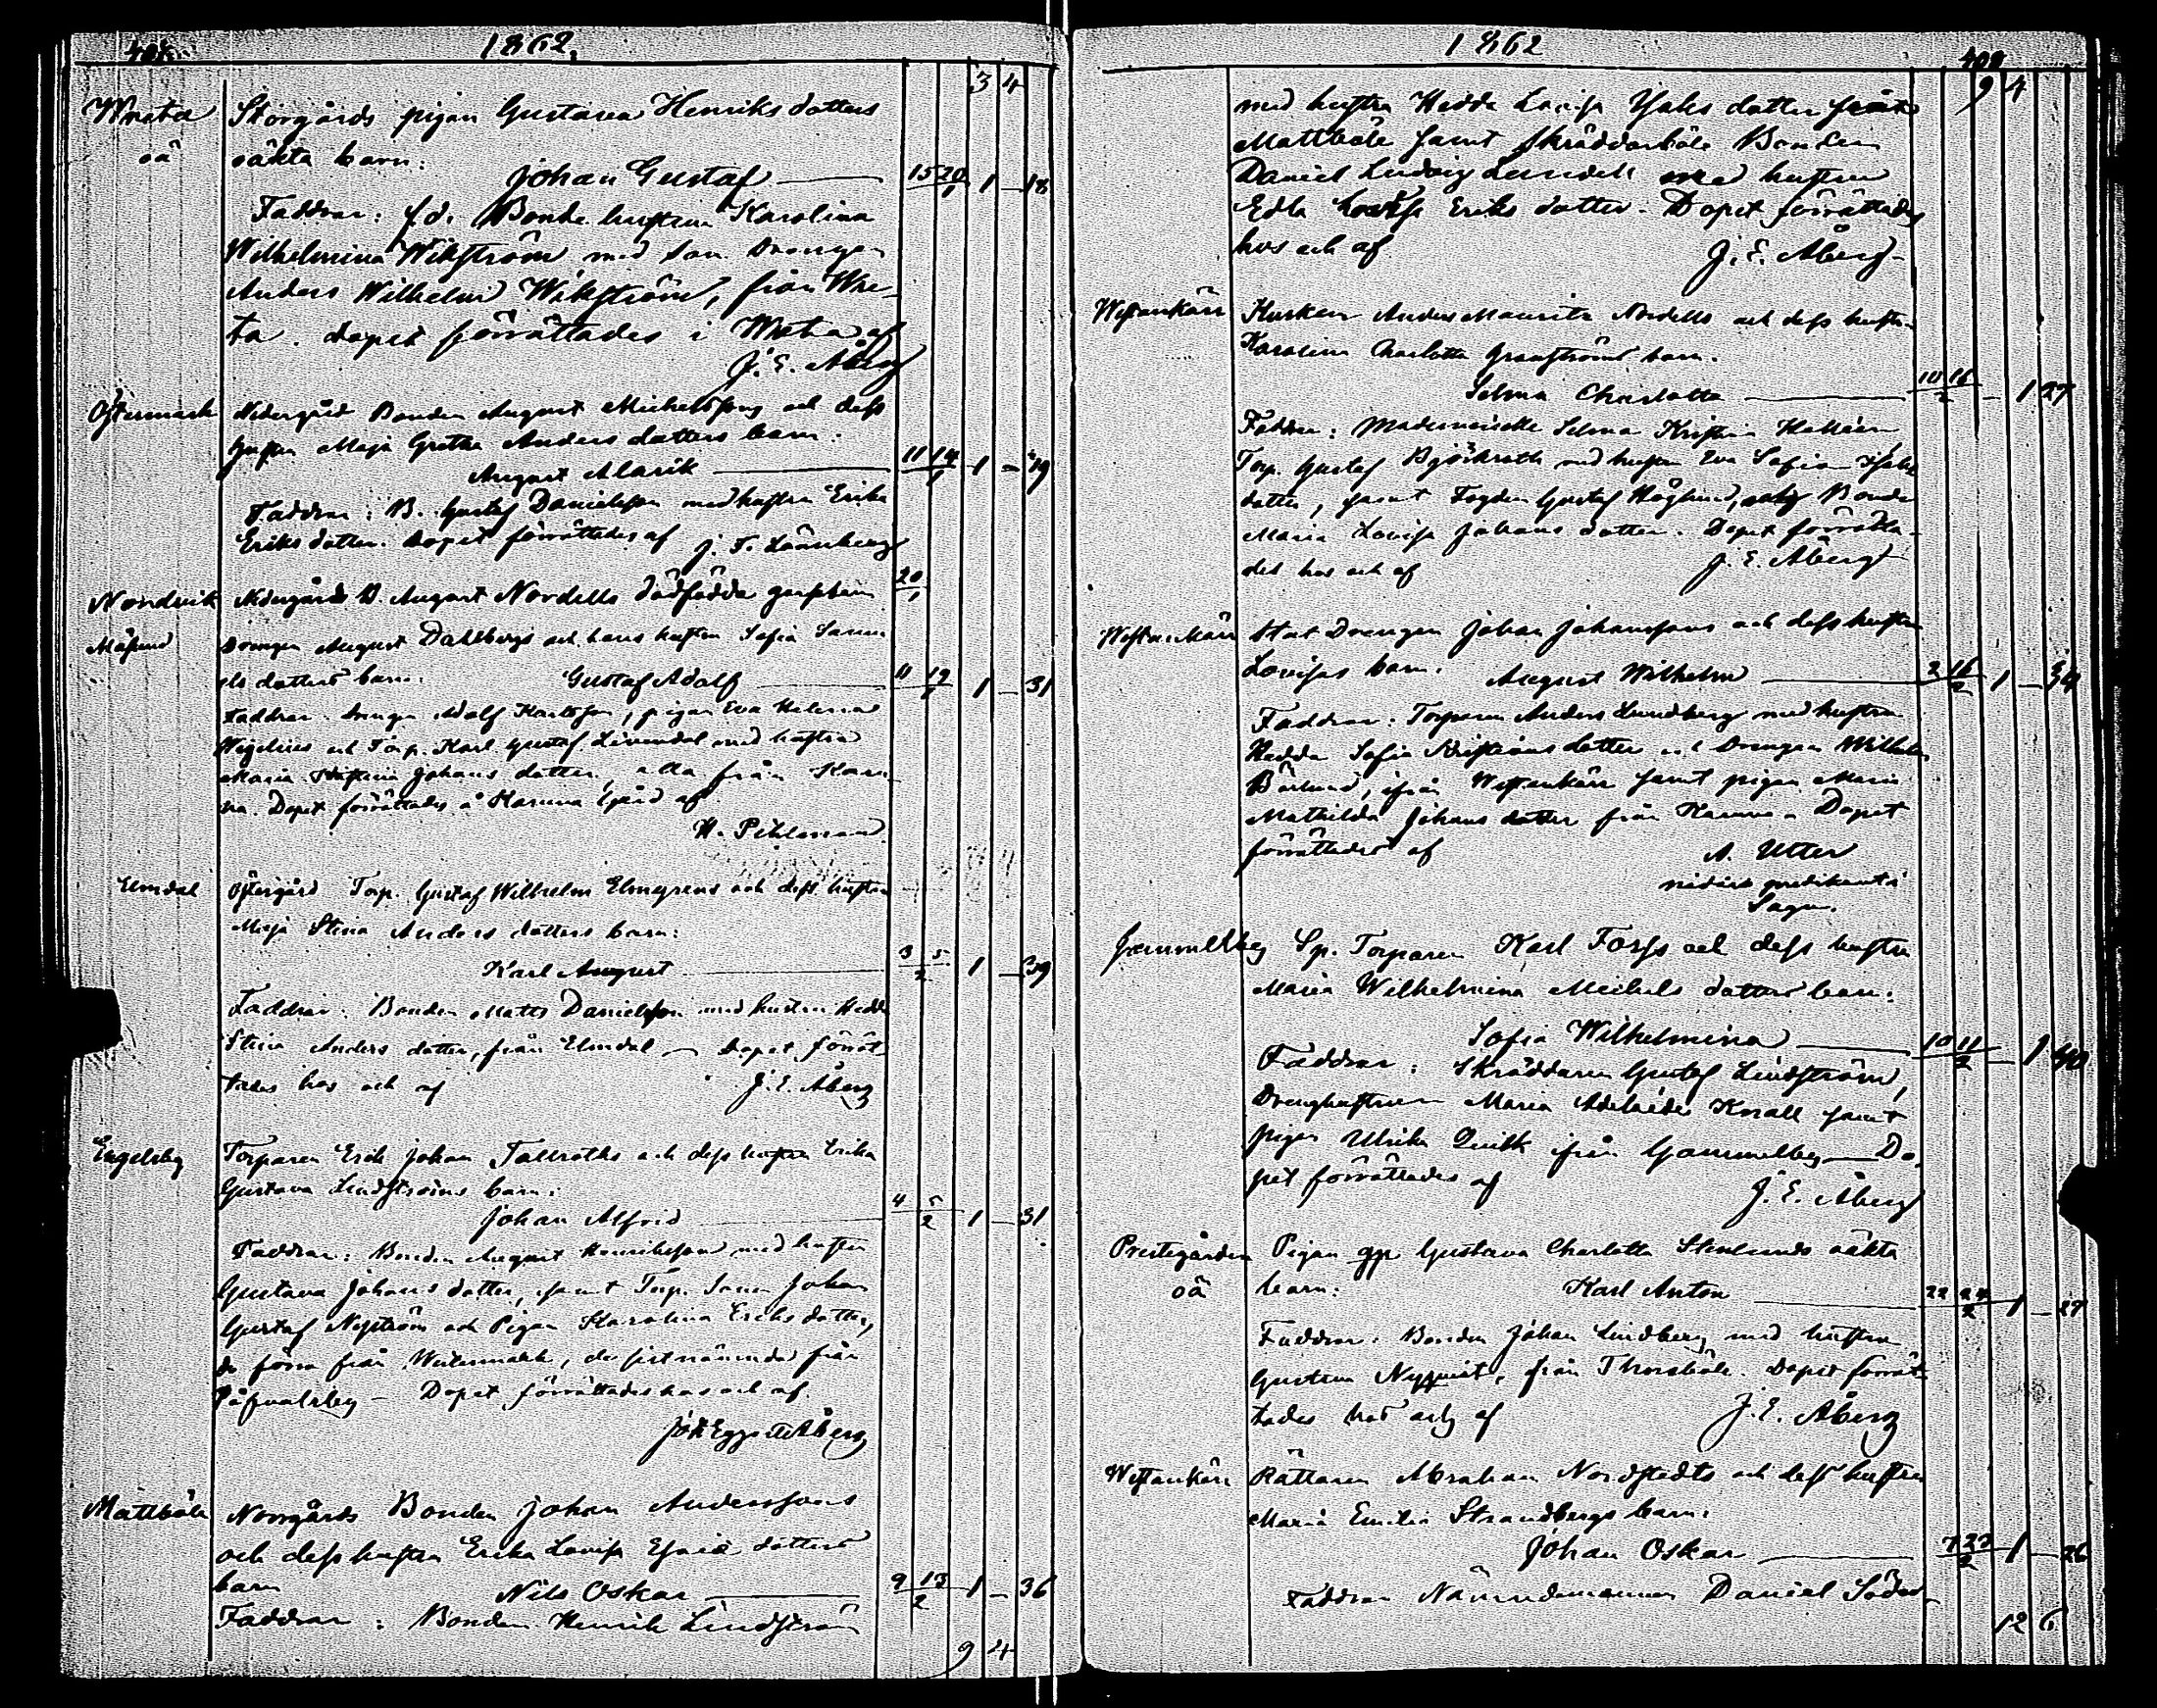 1862.
3 4
Storgårds pigan Gustava Henriks dotters
oä oäkta barn:
Johan Gustaf 15 20/1 1 – 18
Faddrar: f.d. Bonde hustrun Karolina
Wilhelmina Wikström med son Drengen
Anders Wilhelm Wikström, från Wre-
ta. dopet förrättades i Wreta af
J. E. Åberg
Östermark Nedergård Bonden August Michelsons och dess
hustru Maja Greta Anders dotters barn.
August Alarik 11 14/1 1 – 29
Faddrar: B. Gustaf Danielsson med hustru Erika
Eriks dotter. Dopet förrättades af J. F. Läänberg
Nordvik Nedergårds B. August Nordells dödfödda gossebarn 20/1
Drengen August Dahlbergs och hans hustru Sofia Samu
els dotters barn. Gustaf Adolf 11 19/1 1 – 31
Faddrar. Drengen Adolf Karlsson, pigan Eva Helena
och Torp. Karl Gustaf med hustru
Maria Kristina Johans dotter, alla från Karu
na. Dopet förrättades å Karuna af
H. Pihlman
Elmdal Östergård Torp. Gustaf Wilhelm Elmgrens och dess hustru
Maja Stina Anders dotters barn:
Karl August 3 5/2 1 – 39
Faddrar: Bonden Matts Danielsson med hustru Hedda
Stina Anders dotter, från Elmdal – Dopet förrät
tades hos och af J. E. Åberg
Engelsby Torparen Erik Johan Tallroths och dess hustru Erika
Gustava Lindströms barn:
Johan Alfrid 4 5/2 1 – 31
Faddrar: Bonden August Henriksson med hustru
Gustava Johans dotter, samt Torp. Sonen Johan
Gustaf Nyström och Pigan Karolina Eriks dotter,
de förra från Westermark, de sistnämnda från
– Dopet förrättades hos och af
Åberg
Mattböle Norrgårds Bonden Johan Anderssons
och dess hustru Erika Lovisa dotters
barn Nils Oskar 9 13/2 1 – 36
Faddrar: Bonden Henrik Lindström
9 4
1862
409
9 4
med hustru Hedda Lovisa dotter från
Mattböle samt Skräddarböle Bonden
Daniel Ludvig Lundell med hustru
Edla Lovisa Eriks dotter. Dopet förrättades
hos och af J. E. Åberg
Westankärr Kusken Anders Mauritz Nordells och dess hustru
Karolina Charlotta Granströms barn.
Selma Charlotta 10 16/2 – 1 27
Faddrar: Mademoiselle Selma Kristina
Torp. Gustaf Björkroth med hustru Eva Sofia Isaks
dotter, samt Fogden Gustaf Höglund, och Bonde
Maria Lovisa Johans dotter. Dopet förrätta-
des hos och af J. E. Åberg
Westankärr Stat Drengen Johan Johanssons och dess hustru
Lovisas barn. August Wilhelm 2 16/2 1 – 34
Faddrar: Torparen Anders Lundberg med hustru
Hedda Sofia Kristians dotter och Drengen Wilhelm
Bärlund, ifrån Westankärr samt pigan Maria
Mathilda Johans dotter från Karuna – Dopet
förrättades af A. Utter
predikant i
Sagu.
Gammelby Sp. Torparen Karl Forss och dess hustru
Maria Wilhelmina Mickels dotters barn:
Sofia Wilhelmina 10 11/2 – 1 40
Faddrar: Skräddaren Gustaf Lindström,
Drenghustrun Maria Adelaide Knall samt
pigan Ulrika Quick ifrån Gammelby – Do-
pet förrättades af J. E. Åberg
Prestegården Pigan Gustava Charlotta Stenlunds oäkta
oä barn: Karl Anton 22 24/2 1 – 27
Faddrar: Bonden Johan Lindberg med hustru
Gustava Nyqvist, från Thorsböle. Dopet förrät
tades hos och af J. E. Åberg
Westankärr Rättaren Abraham Nordstedts och dess hustru
Maria Emilia Strandbergs barn:
Johan Oskar 7 23/2 1 – 26
Faddrar Nämndemannen Daniel Söder-
12 6